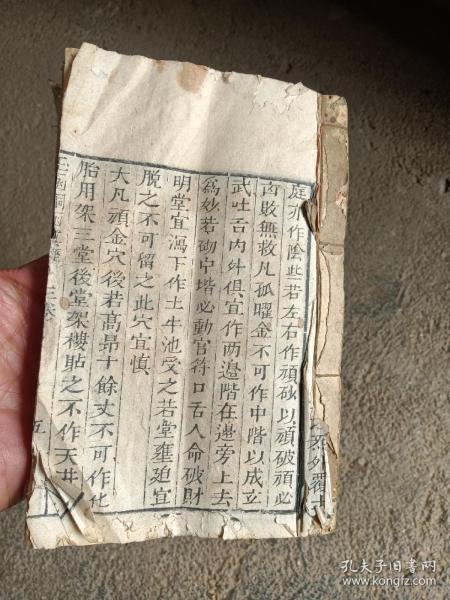 庭亦作陰些若左右作頑砂以頑破頑必
凶敗無救凡孤曜金不可作中階以成立
武吐舌內外俱宜作两邉階在邉旁上去
爲妙若砌中堦必動官符口舌人命破財
明堂宜濶下作土牛池受之若堂壅廹宜
脫之不可留之此穴宜慎
大凡頑金穴後若高昻十餘丈不可作他
胎用架三堂後堂架樓貼之不作天井
五
孔夫子旧書网
www.kongfz.com